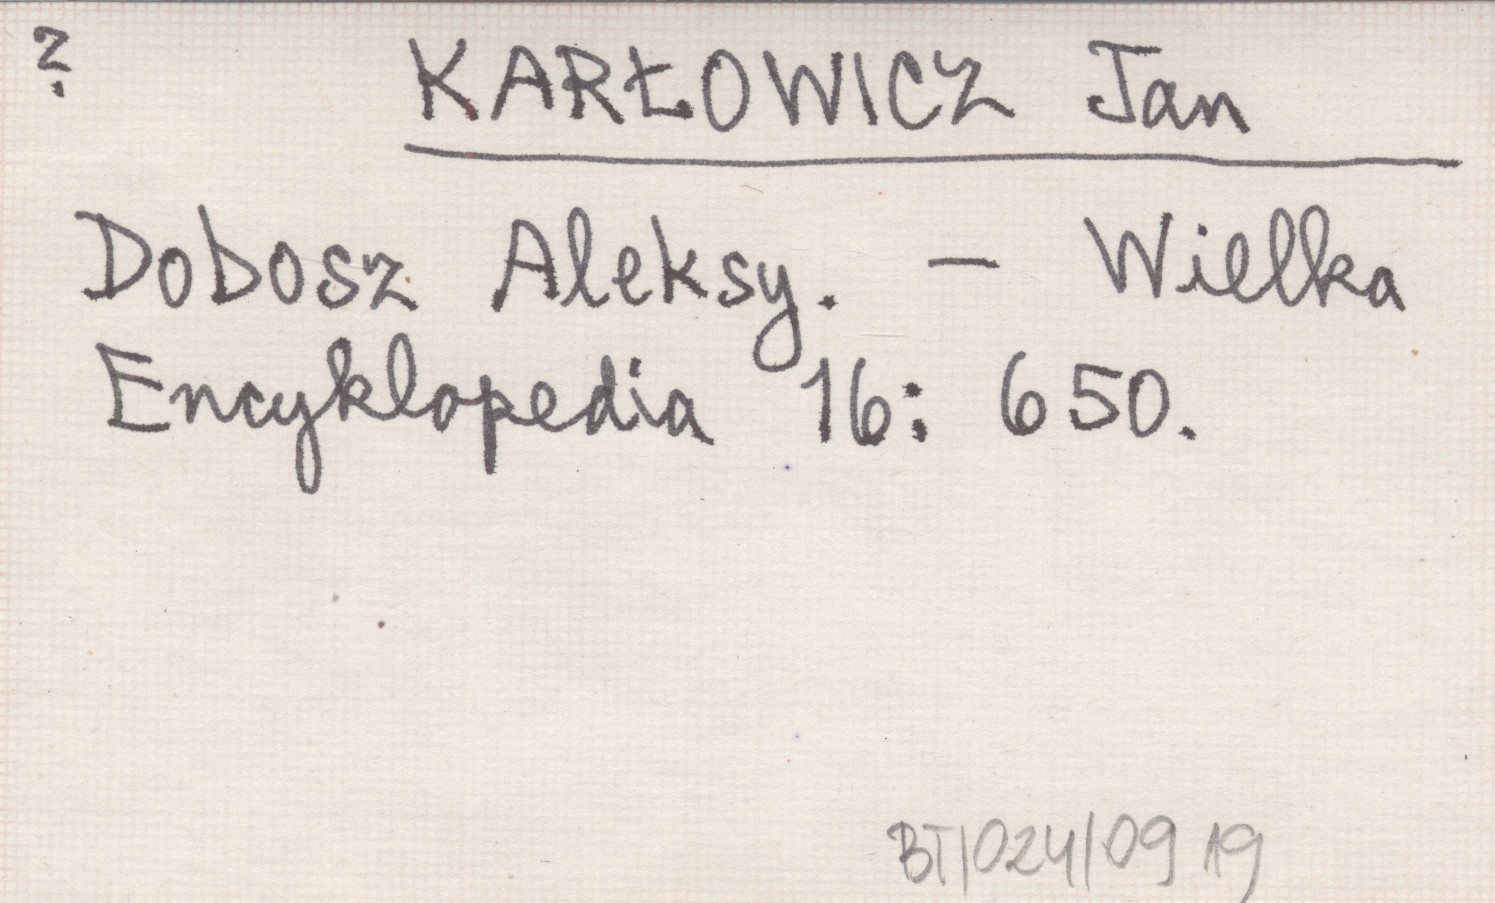 ?
KARŁOWICZ Jan
Dobosz Aleksy. — Wielka
Encyklopedia 16: 650.
BT/024/09 19